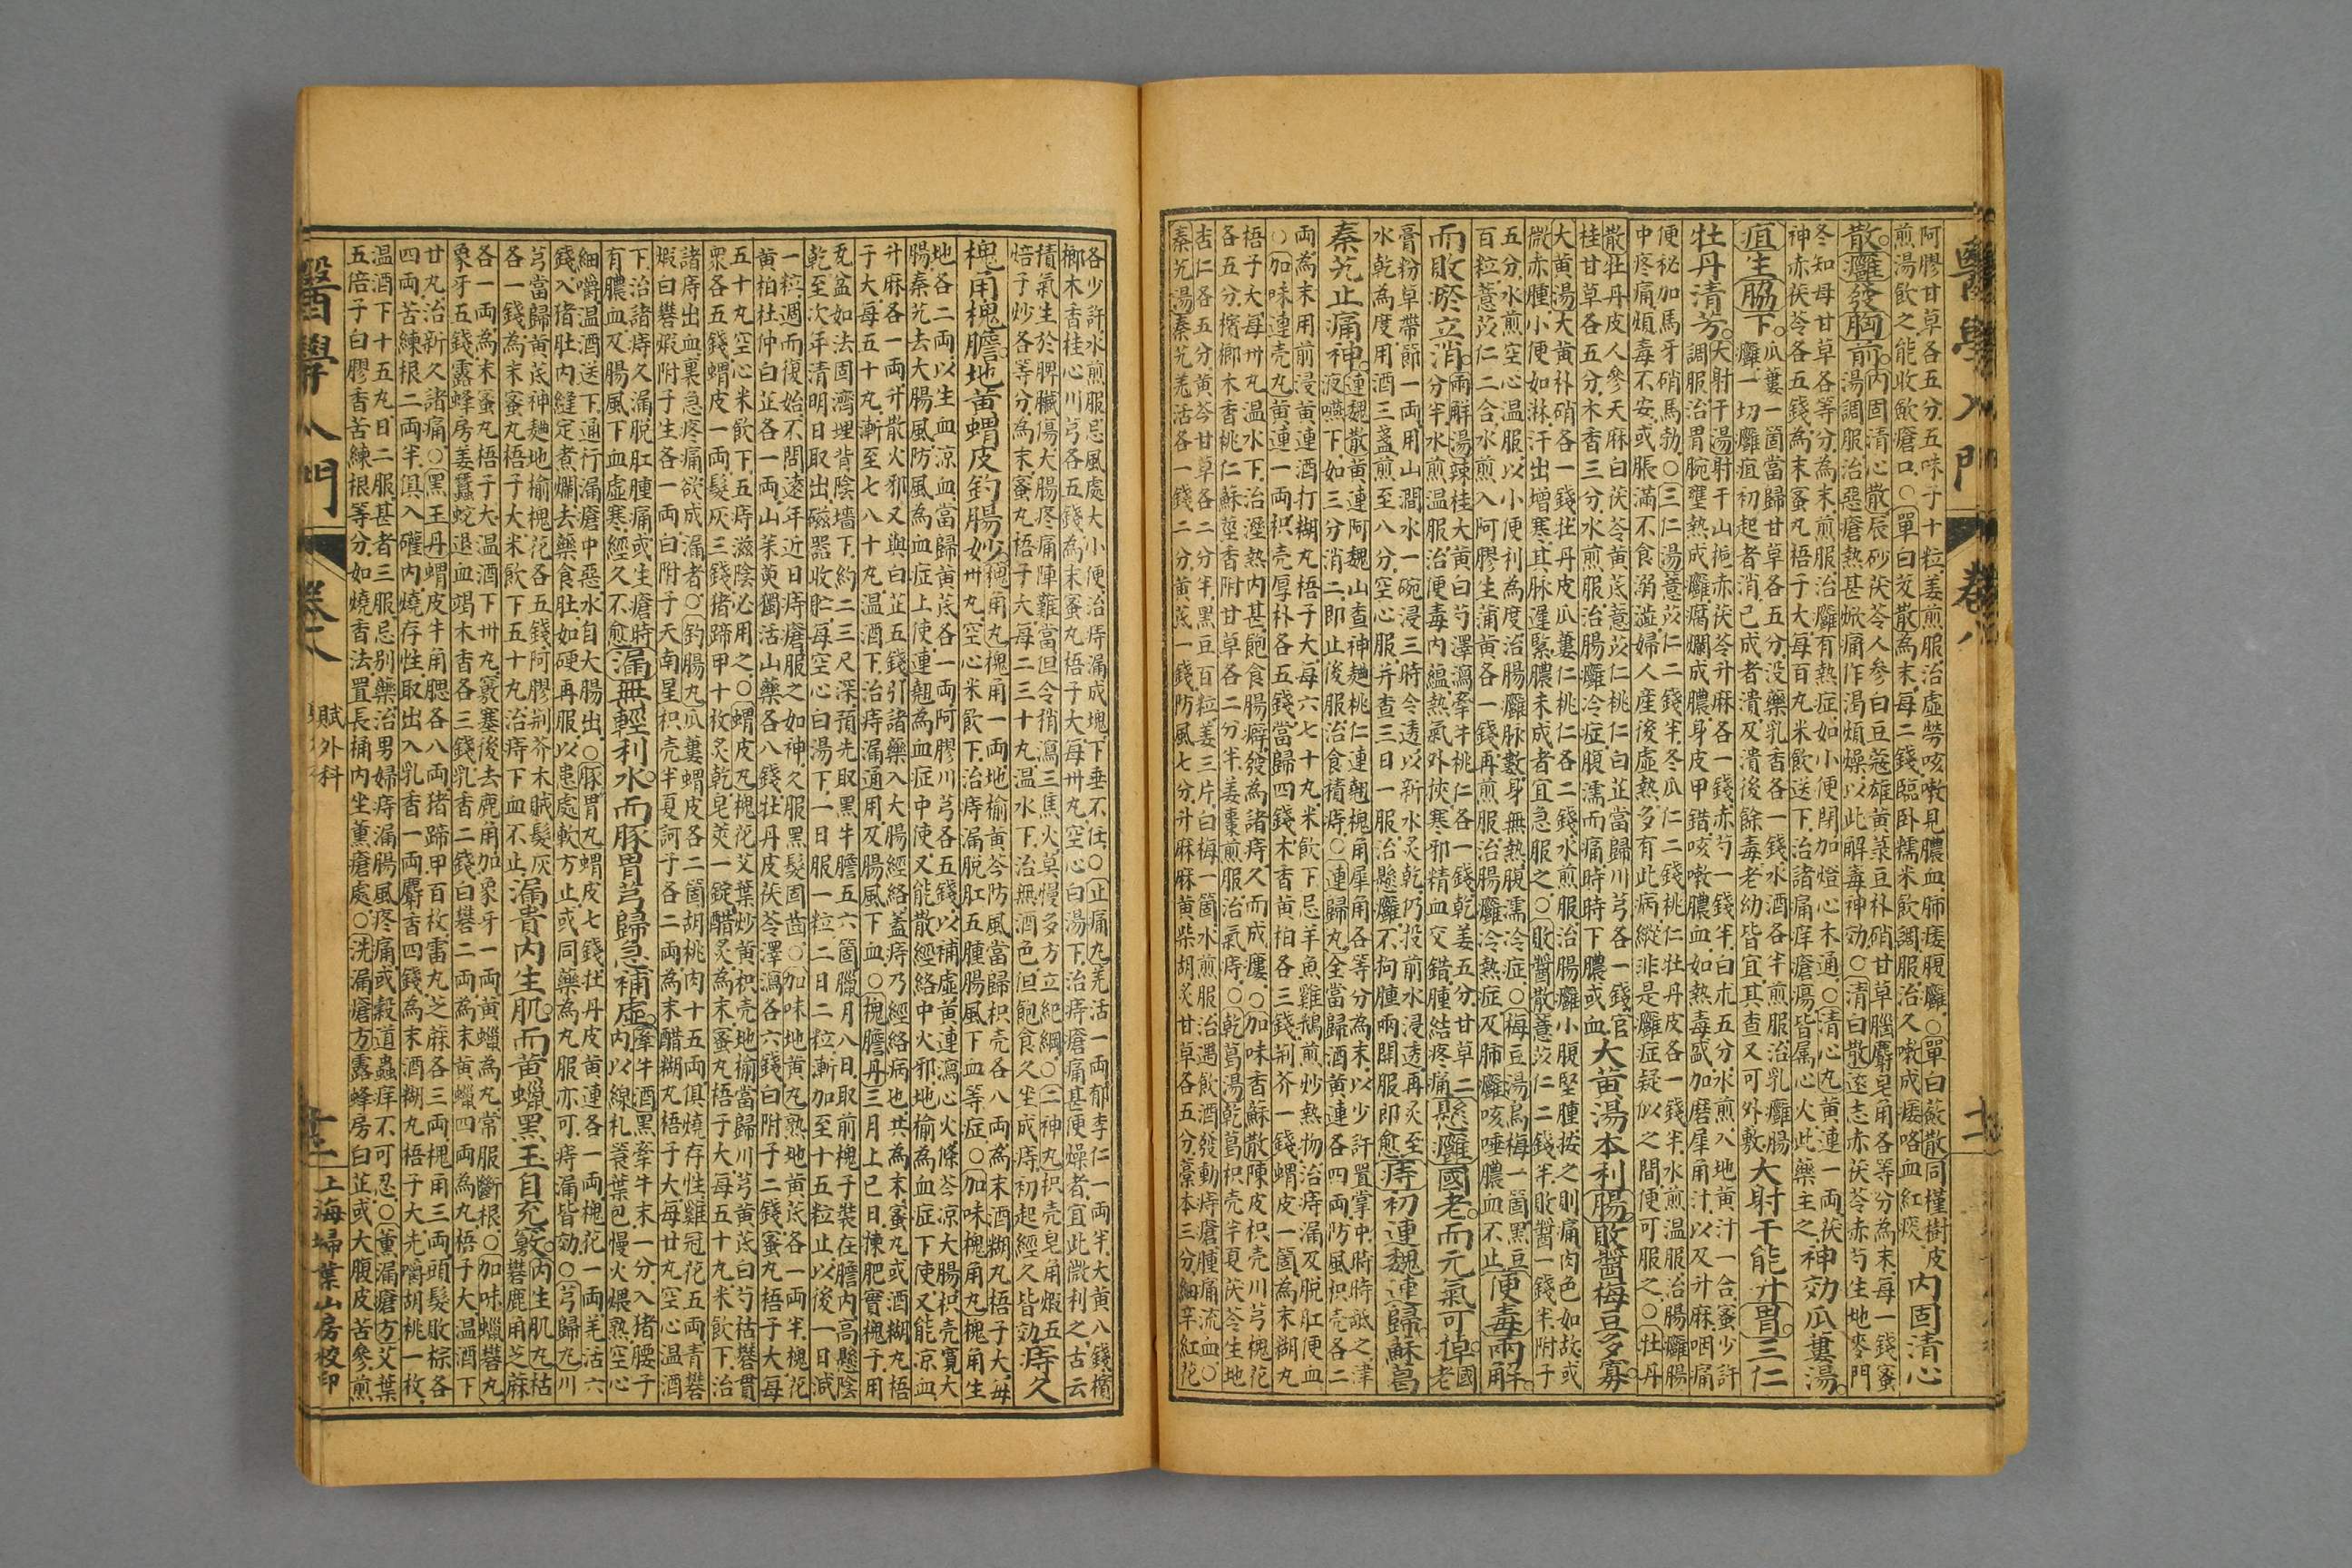 醫學入門
卷八
阿膠甘草各五分五味子十粒姜煎服治虛勞咳嗽見膿血肺痿腹癰○單白蘞散同槿樹皮
煎湯飲之能收歛瘡口○單白芨散為末每二錢臨臥糯米飲調服治久嗽成痿咯血紅痰
內固清心
散癰發胸前
內固清心散辰砂茯苓人參白豆蔻雄黃菉豆朴硝甘草腦麝皂角各等分為末每一錢蜜
湯調服治惡瘡熱甚焮痛作渴煩燥以此解毒神効○清白散遠志赤茯苓赤芍生地麥門
冬知母甘草各等分為末煎服治癰有熱症如小便閉加燈心木通○清心丸黃連一兩茯
神赤茯苓各五錢為末蜜丸梧子大每百丸米飲送下治諸痛痒瘡瘍皆屬心火此藥主之
神効瓜蔞湯
疽生脇下
瓜蔞一箇當歸甘草各五分沒藥乳香各一錢水酒各半煎服治乳癰腸
癰一切癰疽初起者消已成者潰及潰後餘毒老幼皆宜其查又可外敷
大射干能升胃三仁
牡丹清芳
大射干湯射干山梔赤茯苓升麻各一錢赤芍一錢半白朮五分水煎八地黃汁一合蜜少許
調服治胃脘壅熱成癰腐爛成膿身皮甲錯咳嗽膿血如熱毒盛加磨犀角汁以及升麻咽痛
便秘加馬牙硝馬勃○三仁湯薏苡仁二錢半冬瓜仁二錢桃仁牡丹皮各一錢半水煎溫服治腸癰腸
中疼痛煩毒不安或脹滿不食溺澁婦人產後虛熱多有此病縱非是癰症疑似之間便可服之○牡丹
散牡丹皮人參天麻白茯苓黃芪薏苡仁桃仁白芷當歸川芎各一錢官
桂甘草各五分木香三分水煎服治腸癰冷症腹濡而痛時時下膿或血
大黃湯本利腸敗醬梅豆多寡
大黃湯大黃朴硝各一錢牡丹皮瓜蔞仁桃仁各二錢水煎服治腸癰小腹堅腫按之則痛肉色如故或
微赤腫小便如淋汗出增寒其脉遲緊膿未成者宜急服之○敗醬散薏苡仁二錢半敗醬一錢半附子
五分水煎空心溫服以小便利為度治腸癰脉數身無熱腹濡冷症○梅豆湯烏梅一箇黑豆
百粒薏苡仁二合水煎入阿膠生蒲黃各一錢再煎服治腸癰冷熱症及肺癰咳唾膿血不止
便毒兩解
而敗瘀立消
兩解湯辣桂大黃白芍澤瀉牽牛桃仁各一錢乾姜五分甘草二
分半水煎溫服治便毒內蘊熱氣外挾寒邪精血交錯腫結疼痛
懸癰國老而元氣可掉
國老
膏粉草帶節一兩用山澗水一碗浸三時令透以新水炙乾仍投前水浸透再炙至
水乾為度用酒三盞煎至八分空心服并查三日一服治懸癰不拘腫兩閧服即愈
痔初連魏連歸蘇葛
秦艽止痛神
連魏散黃連阿魏山查神麯桃仁連翹槐角犀角各等分為末以少許置掌中時時舐之津
液嚥下如三分消二即止後服治食積痔○連歸丸全當歸酒黃連各四兩防風枳壳各二
兩為末用前浸黃連酒打糊丸梧子大每六七十丸米飲下忌羊魚雞鵝煎炒熱物治痔漏及脫肛便血
○加味連壳丸黃連一兩枳壳厚朴各五錢當歸四錢木香黃柏各三錢荊芥一錢蝟皮一箇為末糊丸
梧子大每卅丸溫水下治溼熱內甚飽食腸癖發為諸痔久而成瘻○加味香蘇散陳皮枳壳川芎槐花
各五分檳榔木香桃仁蘇莖香附甘草各二分半姜棗煎服治氣痔○乾葛湯乾葛枳壳半夏茯苓生地
杏仁各五分黃芩甘草各二分半黑豆百粒姜三片白梅一箇水煎服治遇飲酒發動痔瘡腫痛流血○
秦艽湯秦艽羌活各一錢二分黃芪一錢防風七分升麻麻黃柴胡炙甘草各五分藁本三分細辛紅花
各少許水煎服忌風處大小便治痔漏成塊下垂不任○止痛丸羌活一兩郁李仁一兩半大黃八錢檳
榔木香桂心川芎各五錢為末蜜丸梧子大每卅丸空心白湯下治痔瘡痛甚便燥者宜此微利之古云
積氣生於脾臟傷大腸疼痛陣難當但令稍瀉三焦火莫慢多方立紀綱○三神丸枳壳皂角煅五
焙子炒各等分為末蜜丸梧子大每二三十丸溫水下治無酒色但飽食久坐成痔初起經久皆効
痔久
槐角槐膽地黃蝟皮釣腸妙
槐角丸槐角一兩地榆黃芩防風當歸枳壳各八兩為末酒糊丸梧子大每
卅丸空心米飲下治痔漏脫肛五腫腸風下血等症○加味槐角丸槐角生
地各二兩以生血涼血當歸黃芪各一兩阿膠川芎各五錢以補虛黃連瀉心火條芩涼大腸枳壳寬大
腸秦艽去大腸風防風為血症上使連翹為血症中使又能散經絡中火邪地榆為血症下使又能涼血
升麻各一兩升散火邪又與白芷五錢引諸藥入大腸經絡蓋痔乃經絡病也共為末蜜丸或酒糊丸梧
于大每五十丸漸至七八十丸溫酒下治痔漏通用及腸風下血○槐膽丹三月上巳日揀肥實槐子用
瓦盆如法固濟埋背陰墻下約二三尺深預先取黑牛膽五六箇臘月八日取前槐子裝在膽內高懸陰
乾至次年清明日取出磁器收貯每空心白湯下一日服一粒二日二粒漸加至十五粒止以後一日減
一粒週而復始不問遠年近日痔瘡服之如神久服黑髮固齒○加味地黃丸熟地黃黃芪各一兩半槐花
黃柏杜仲白芷各一兩山茱萸獨活山藥各八錢牡丹皮茯苓澤瀉各六錢白附子二錢蜜丸梧子大每
五十丸空心米飲下五痔滋陰必用之○蝟皮丸槐花艾葉炒黃枳壳地榆當歸川芎黃芪白芍枯礬貫
衆各五錢蝟皮一兩髮灰三錢猪蹄甲十枚炙乾皂莢一錠醋炙為末蜜丸梧子大每五十丸米飲下治
諸痔出血裏急疼痛欲成漏者○釣腸丸瓜蔞蝟皮各二箇胡桃肉十五兩俱燒存性雞冠花五兩青礬
煅白礬煅附子生各一兩白附子天南星枳壳半夏訶子各二兩為末醋糊丸梧子大每廿丸空心溫酒
下治諸痔久漏脫肛腫痛或生瘡時
有膿血及腸風下血虛寒經久不愈
漏無輕利水而豚胃芎歸急補虛
牽牛酒黑牽牛末一分入猪腰子
內以線札箬葉包慢火煨熟空心
細嚼溫酒送下通行漏瘡中惡水自大腸出○豚胃丸蝟皮七錢牡丹皮黃連各一兩槐花一兩羌活六
錢入猪肚內縫定煮爛去藥食肚如硬再服以患處軟方止或同藥為丸服亦可痔漏皆効○芎歸丸川
芎當歸黃芪神麯地榆槐花各五錢阿膠荊芥木賊髮灰
各一錢為末蜜丸梧子大米飲下五十丸治痔下血不止
漏貴內生肌而黃蠟黑玉自充竅
內生肌丸枯
礬鹿角芝麻
各一兩為末蜜丸梧子大溫酒下卅丸竅塞後去鹿角加象牙一兩黃蠟為丸常服斷根○加味蠟礬丸
象牙五錢露蜂房姜蠶蛇退血竭木香各三錢乳香二錢白礬二兩為末黃蠟四兩為丸梧子大溫酒下
廿丸治新久諸痛○黑玉丹蝟皮牛角腮各八兩猪蹄甲百枚雷丸芝蔴各三兩槐角三兩頭髮敗棕各
四兩苦練根二兩半俱入礶內燒存性取出入乳香一兩麝香四錢為末酒糊丸梧子大先嚼胡桃一枚
溫酒下十五丸日二服甚者三服忌別藥治男婦痔漏腸風疼痛或穀道蟲痒不可忍○薰漏瘡方艾葉
五倍子白膠香苦練根等分如燒香法置長桶內坐薰瘡處○洗漏瘡方露蜂房白芷或大腹皮苦參煎
醫學入門
賦
外科
上海埽葉山房校印